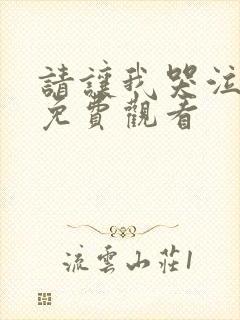 請讓我哭泣
免費觀看
流雲山莊1